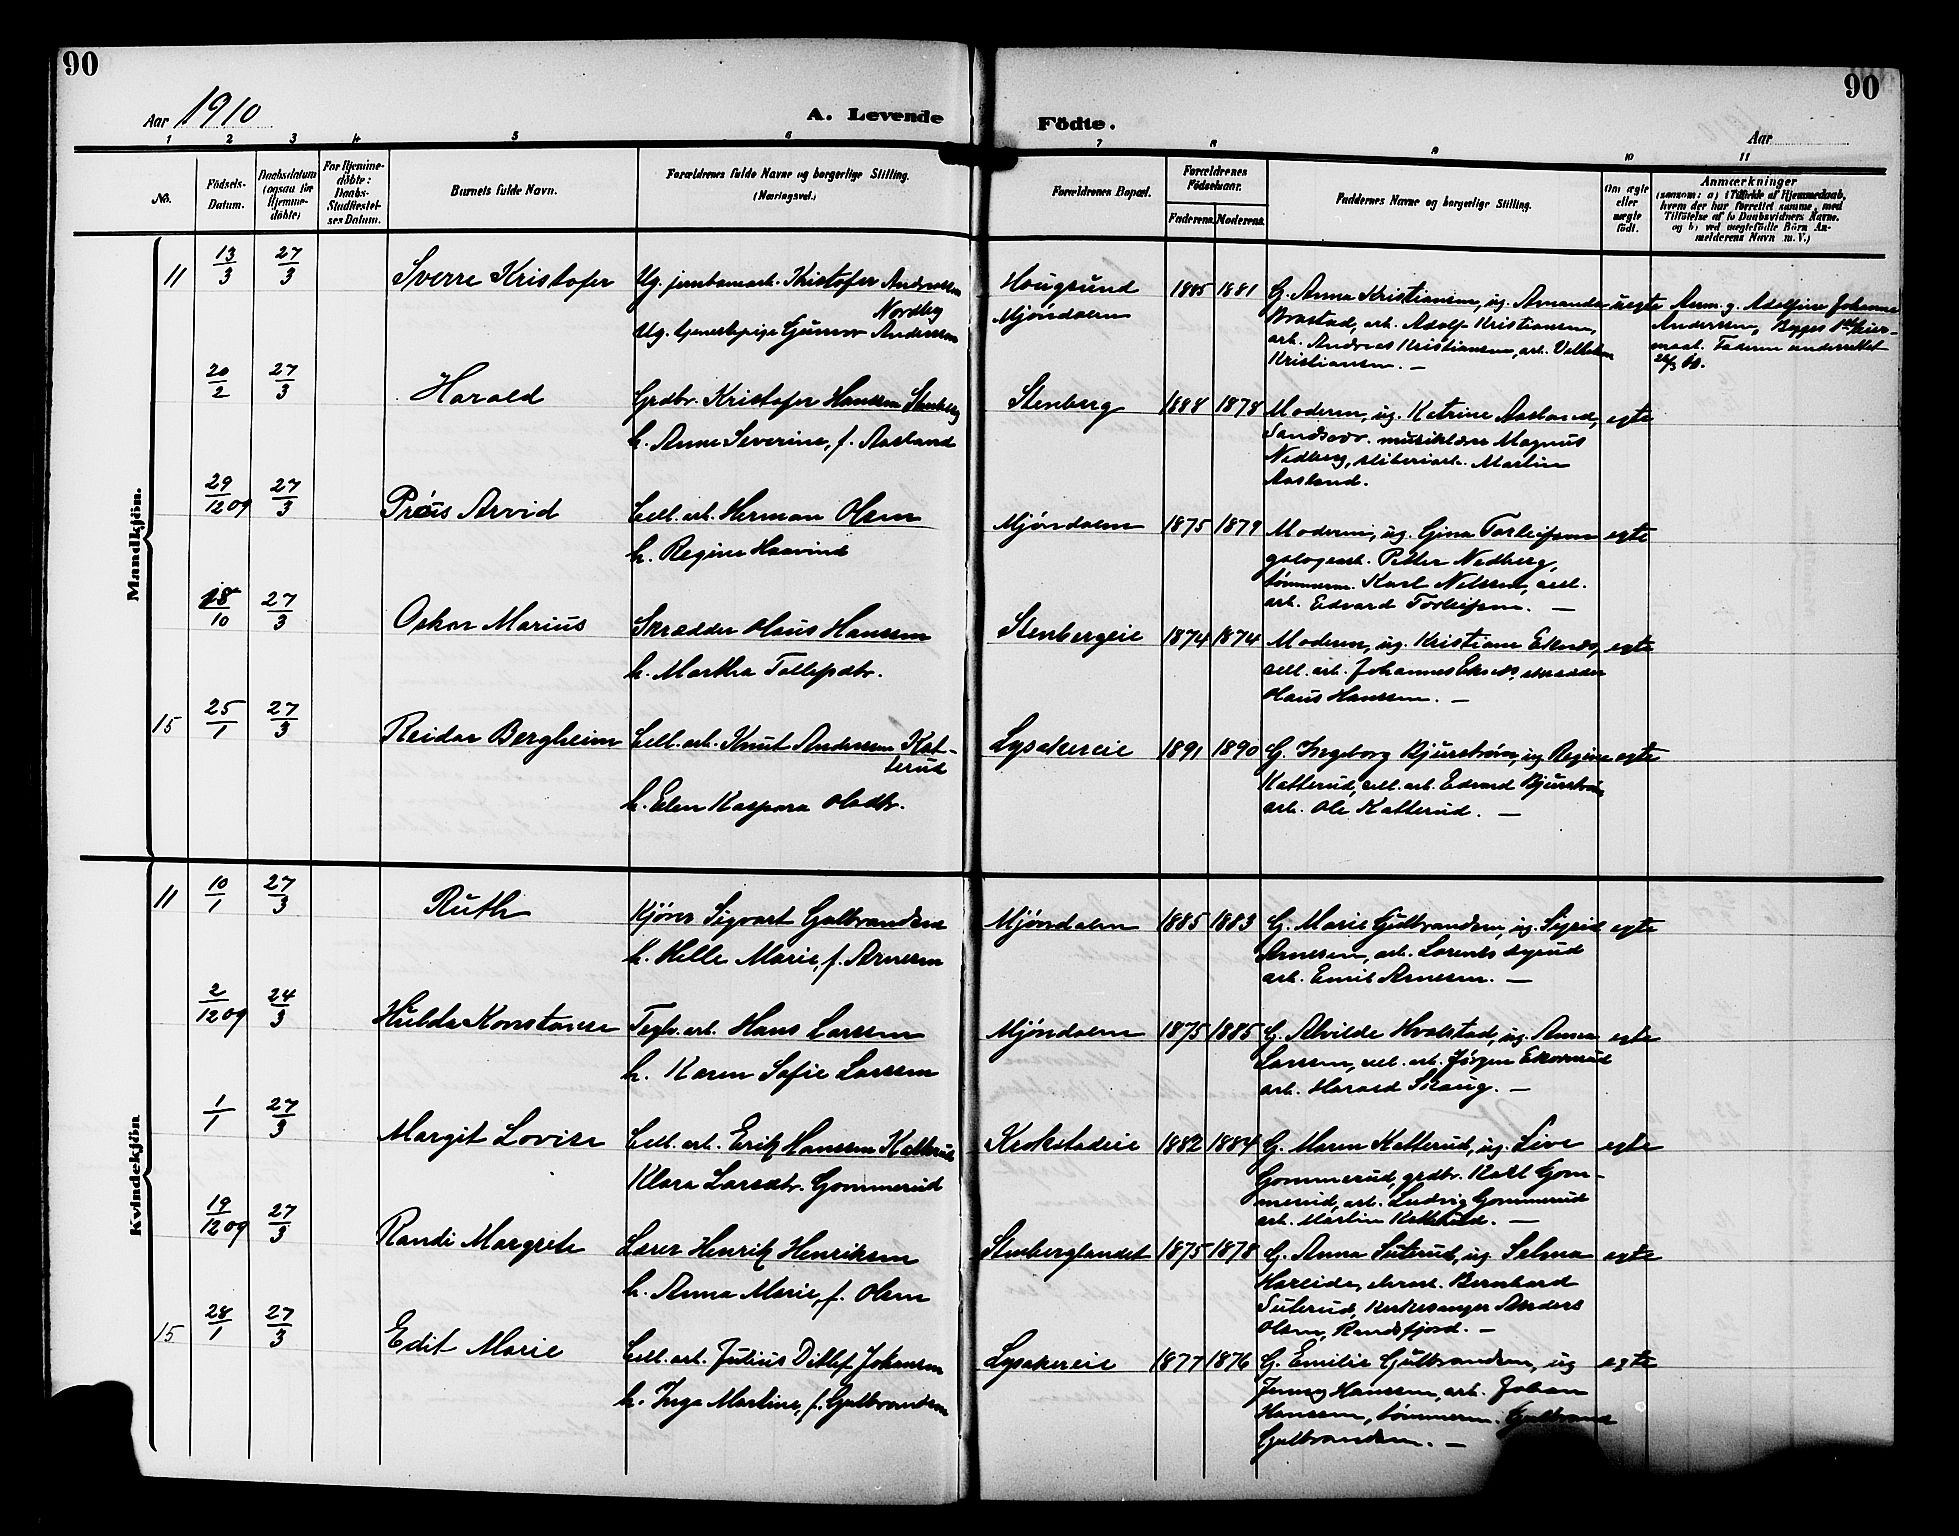 90
90
Aar 1910
A. Levende
Födte.
Aar
1 2 3 4 5 6 7 8 9 10 11
No.
Födsels-
Datum.
Daabsdatum
(ogsaa for
Hjemme-
döbte)
For Hjemme-
döbte:
Daabs-
Stadfæstel-
ses Datum.
Barnets fulde Navn.
Forældrenes fulde Navne og borgerlige Stilling.
(Næringsvei.)
Forældrenes Bopæl.
Forældrenes
Födselsaar.
Faderens.
Moderens.
Faddernes Navne og borgerlige Stilling.
Om ægte
eller
uægte
födt.
Anmærkninger
(saasom: a) i Tilfælde af Hjemmedaab,
hvem der har forrettet samme, med
Tilföielse af to Daabsvidners Navne,
og b) ved uægtefödte Börn An-
melderens Navn m. V.)
Mandkjön.
11 13/3 27/3 Sverre Kristofer
Ug. jernbanearb. Kristofer Andersen
Nordby
Ug. tjenestepige Gunvor Anderssen
Hougsund
Mjøndalen
1885 1881
G. Anna Kristiansen, ug. Amanda
Brastad, arb. Adolf Kristiansen,
arb. Andreas Kristiansen, arb. Vilhelm
Kristiansen. —
uegte
Anm. g. Adolfine Johanne
Anderssen,
Faderen underrettet
20/2 27/3 Harald
Grdbr. Kristofer Hanssen Stenberg
h. Anne Severine, f. Aasland
Stenberg
1884 1878
Moderen, ug. Katrine Aasland,
Sandsvær. musiklærer Magnus
Nedberg, sliberiarb. Martin
Aasland.
egte
29/12 09 27/3 Prøis Arvid
Cell. arb. Herman Olsen
h. Regine Haavind
Mjøndalen
1875 1879
Moderen, ug. Gina Torleifsen
galogearb. Petter Nedberg,
tømmerm. Karl Nilssen, cell.
arb. Edvard Torleifsen. —
egte
18/10 27/3 Oskar Marius
Skrædder Olaus Hanssen
h. Martha Tollefsdtr.
Stenbergeie
1874 1874
Moderen, ug. Kristiane Eknes,
cell. arb. Johannes Eknes, skrædder
Olaus Hanssen. —
egte
15 25/1 27/3 Reidar Bergheim
Cell. arb. Knut Anderssen Kat-
terud
h. Elen Kaspara Olsdtr.
Lysakereie
1891 1890
G. Ingeborg Bjurstrøm, ug. Regine
Katterud, cell. arb. Edvard Bjurstrøm,
arb. Ole Katterud. —
egte
Kvindekjön
11 10/1 27/3 Ruth
Kjører Sigvart Gulbrandsen
h. Helle Marie, f. Arnesen
Mjøndalen
1885 1883
G. Marie Gulbrandsen, ug. Sigrid
Arnesen, arb. Lorents Lyrud
arb. Emil Arnesen. —
egte
2/12 09 24/3 Hulda Konstanse
Teglv. arb. Hans Larssen
h. Karen Sofie Larssen
Mjøndalen
1875 1885
G. Alvilde Hvalstad, ug. Anna
Larssen, cell. arb. Jørgen Ekornrud
arb. Harald Skaug. —
egte
1/1 27/3 Margit Lovise
Cell. arb. Erik Hanssen Katterud
Klara Larsdtr. Gommerud
Krokstadeie
1882 1884
G. Maren Katterud, ug. Live
Gommerud, grdbr. Karl Gom-
merud, arb. Ludvig Gommerud
arb. Martin Katterud. —
egte
19/12 09 27/3 Randi Margrete
Lærer Henrik Henriksen
h. Anna Marie, f. Olsen
Stenberglandet
1875 1878
G. Anna Suterud, ug. Selma
Hareide, Bernhard
Suterud, kirkesanger Anders
Olsen, Randsfjord. —
egte
15 28/1 27/3 Edit Marie
Cell. arb. Julius Ditlef Johansen
h. Inga Martine, f. Gulbrandsen
Lysakereie
1877 1876
G. Emilie Gulbrandsen, ug
Jenny Hanssen, arb. Johan
Hanssen, tømmerm. Gulbrand
Gulbrandsen. —
egte